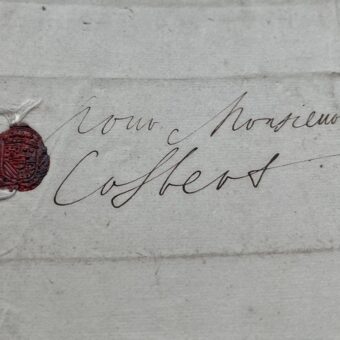 Pour Monsieur
Colbert